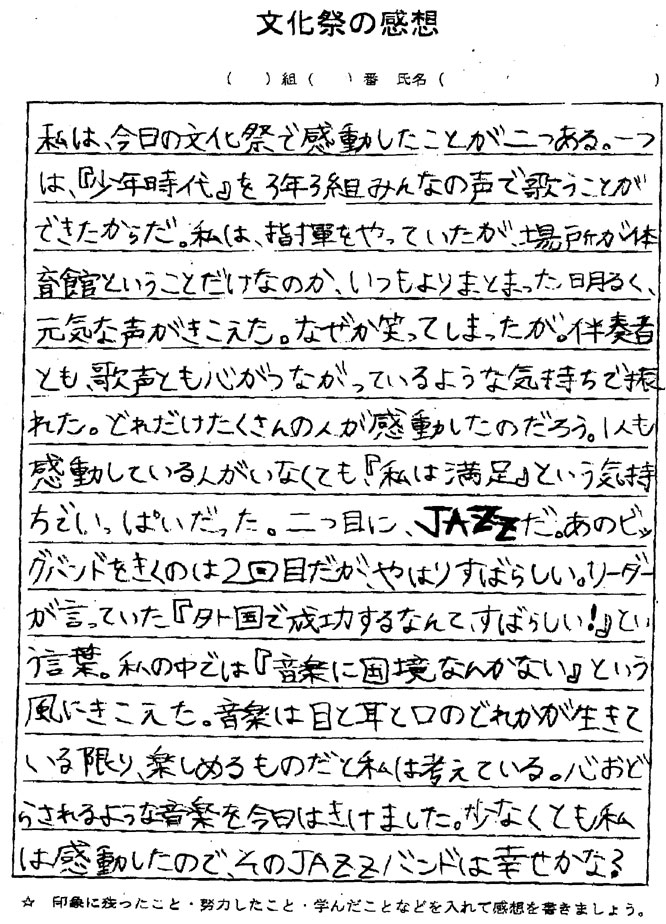 文化祭の感想
(　)組(　)番 氏名(　　　)
私は、今日の文化祭で感動したことが二つある。一つ
は、『少年時代』を3年3組みんなの声で歌うことが
できたからだ。私は、指揮をやっていたが、場所が体
育館ということだけなのか、いつもよりまとまった、明るく、
元気な声がきこえた。なぜか笑ってしまったが。伴奏者
とも、歌声とも心がつながっているような気持ちで振
れた。どれだけたくさんの人が感動したのだろう。1人も
感動している人がいなくても『私は満足』という気持
ちでいっぱいだった。二つ目に、JAZZだ。あのビッ
グバンドをきくのは2回目だが、やはりすばらしい。リーダー
が言っていた『外国で成功するなんて、すばらしい!』とい
う言葉。私の中では『音楽に国境なんかない』という
風にきこえた。音楽は目と耳と口のどれかが生きて
いる限り、楽しめるものだと私は考えている。心おど
らされるような音楽を今日はきけました。少なくとも私
は感動したので、そのJAZZバンドは幸せかな?
☆ 印象に残ったこと・努力したこと・学んだことなどを入れて感想を書きましょう。